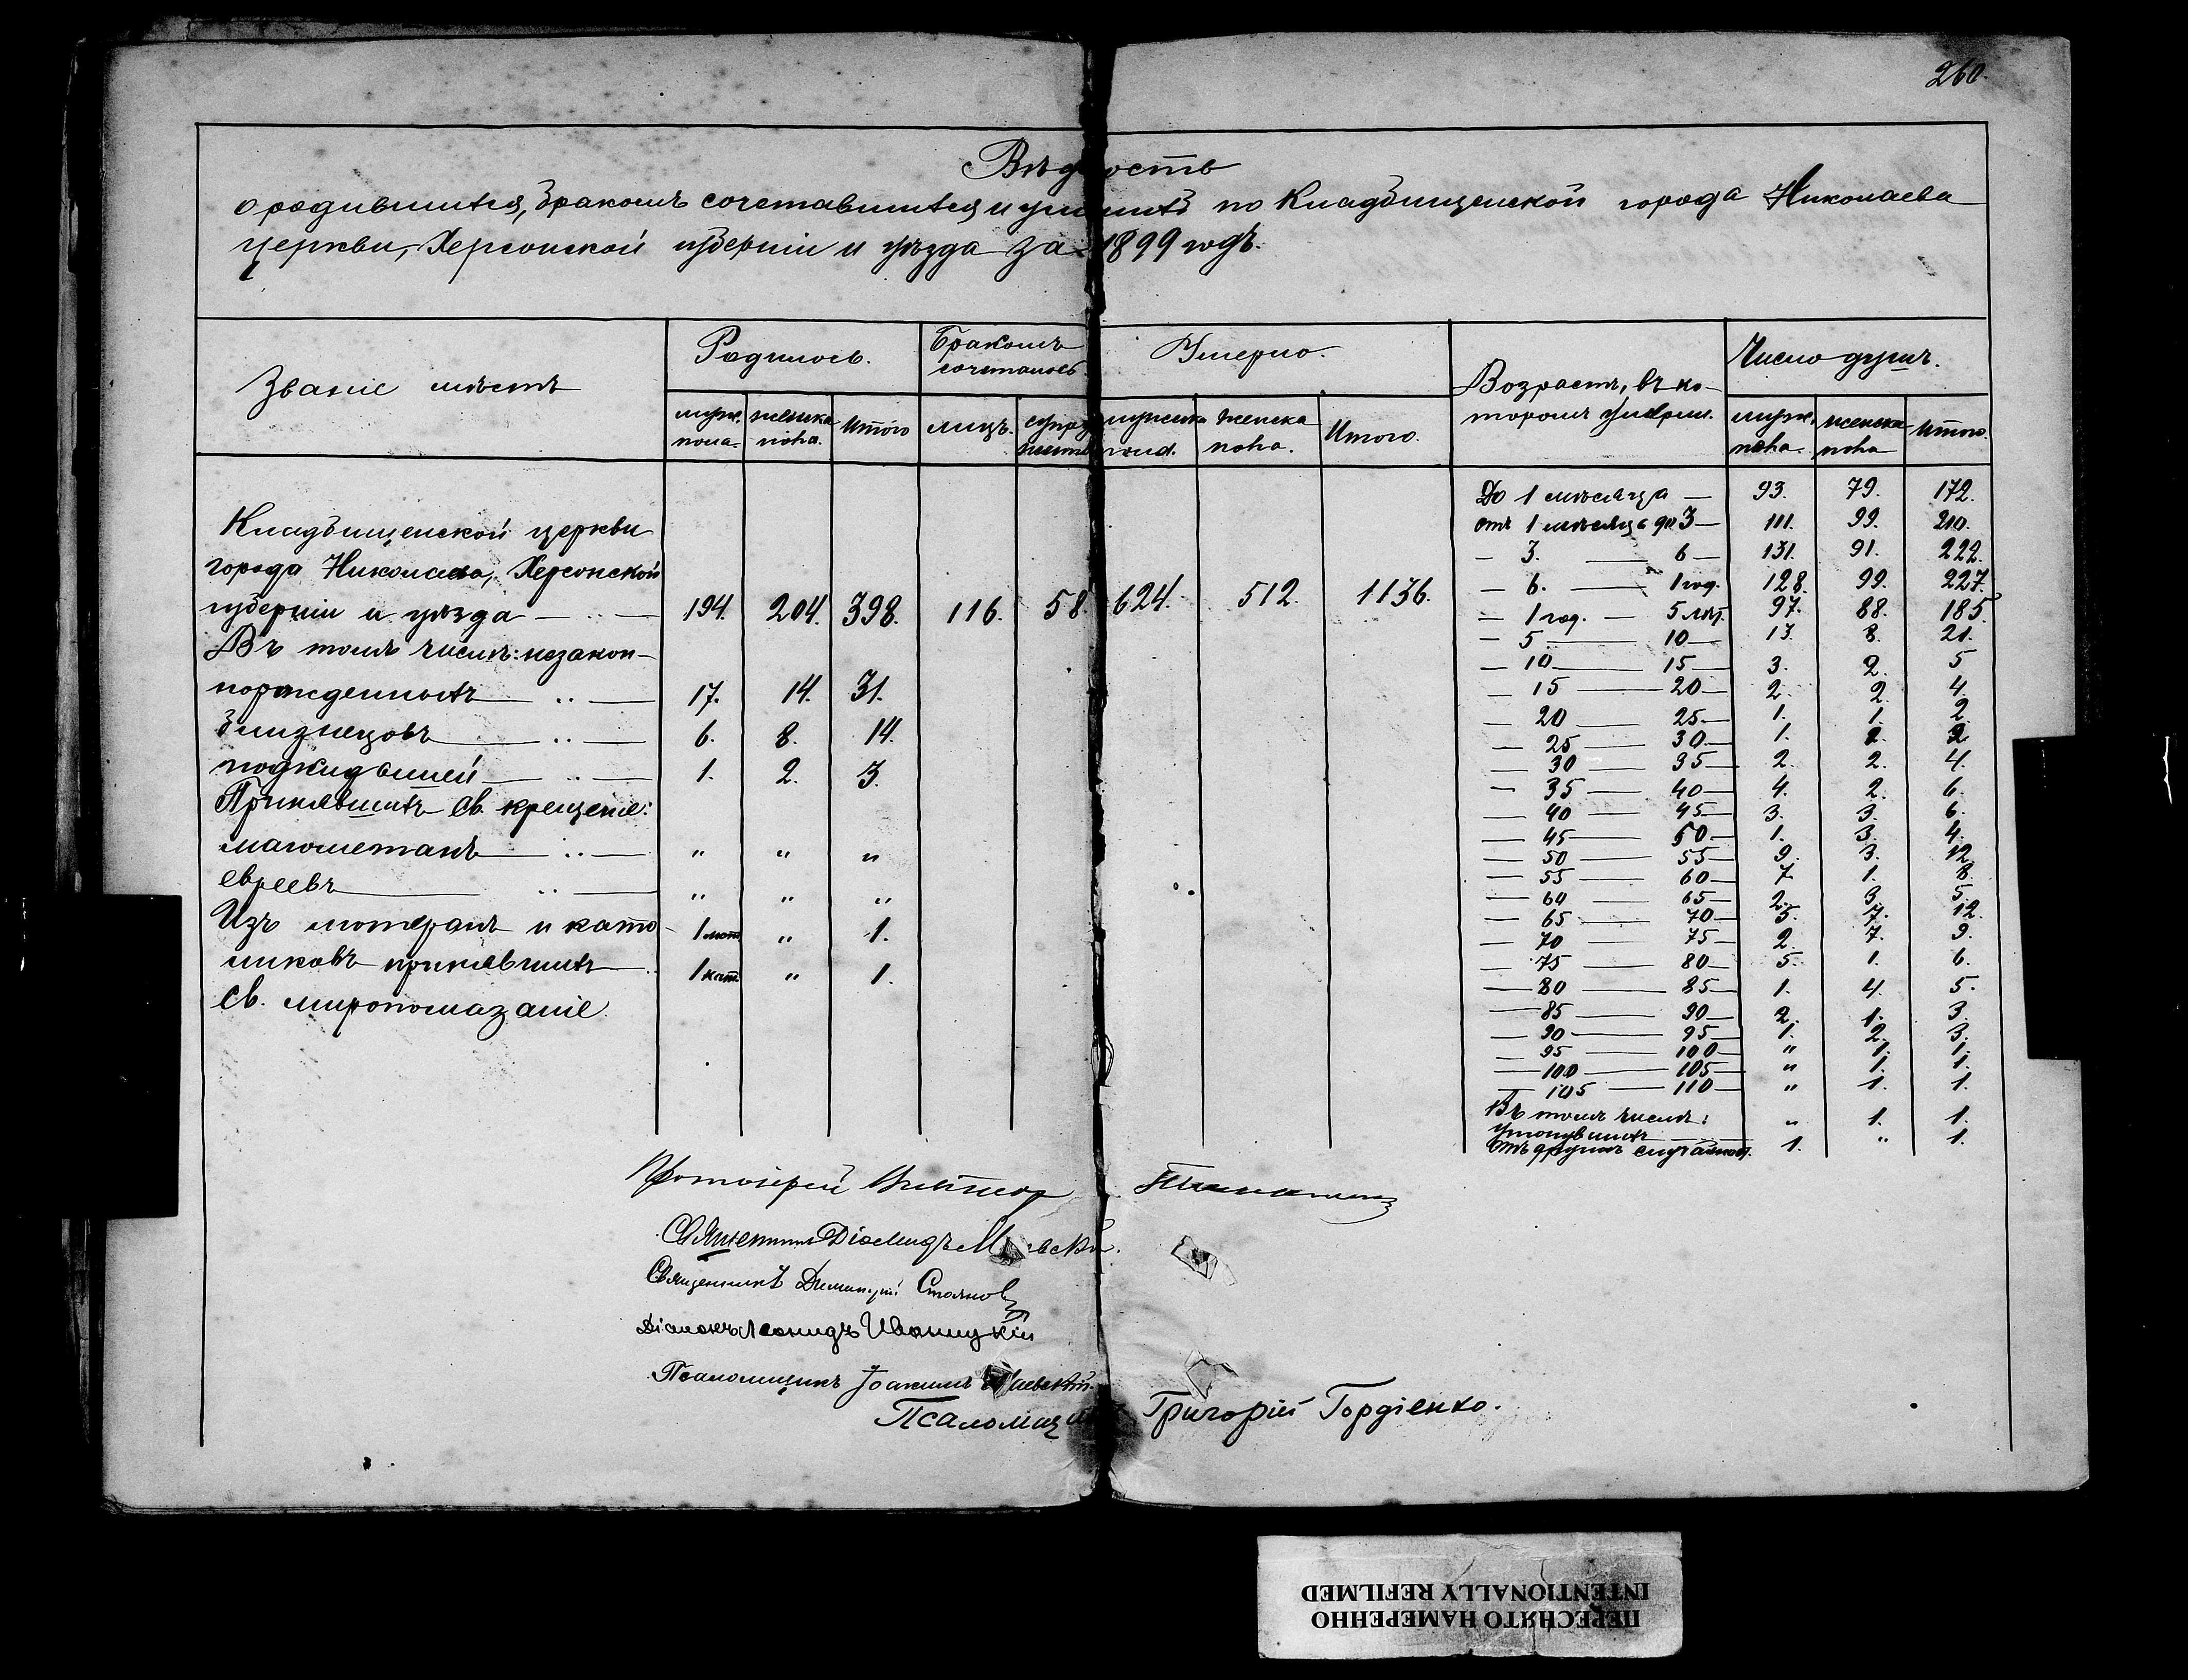 260.
Вѣдомость
о родившихся, бракомъ сочетавшихся и умершихъ по Кладбищенской города Николаева
церкви, Херсонской губерніи и уѣзда за 1899 годъ.
Званіе мѣстъ
Родилось.
Бракомъ сочеталось
Умерло.
Возрастъ, въ ко-
торомъ умерли.
Число душъ.
муж. пола. женска пола. Итого лицъ. супружествъ мужска пола. женска пола. Итого. муж. пола. женска пола Итого.
Кладбищенской церкви
города Николаева, Херсонской
губерніи и уѣзда — .. — 194. 204. 398. 116. 58. 624. 512. 1136.
Въ томъ числѣ: незакон-
норожденныхъ — .. — 17. 14. 31.
близнецовъ — .. — 6. 8. 14.
подкидышей — .. — 1. 2. 3.
Принявшихъ св. крещеніе:
магометанъ — .. — " " "
евреевъ — .. — " " "
Изъ лютеранъ и като- 1 лют. " 1.
ликовъ принявшихъ 1 кат. " 1.
св. миропомазаніе.
До 1 мѣсяца — 93. 79. 172.
отъ 1 мѣсяца до 3 — 111. 99. 210.
— 3. — 6 — 131. 91. 222.
— 6. — 1 год. 128. 99. 227.
— 1 год. — 5 лѣт. 97. 88. 185.
— 5 — 10 — 13. 8. 21.
— 10 — 15 — 3. 2. 5
— 15 — 20 — 2. 2. 4.
— 20 — 25 — 1. 1. 2.
— 25 — 30 — 1. 2
— 30 — 35 — 2. 2. 4.
— 35 — 40 — 4. 2. 6.
— 40 — 45 — 3. 3. 6.
— 45 — 50 — 1. 3. 4.
— 50 — 55 — 9. 3. 12
— 55 — 60 — 7. 1. 8.
— 60 — 65 — 2. 3. 5.
— 65 — 70 — 5. 7. 12.
— 70 — 75 — 2. 7. 9.
— 75 — 80 — 5. 1. 6.
— 80 — 85 — 1. 4. 5.
— 85 — 90 — 2. 1. 3.
— 90 — 95 — 1. 2. 3.
— 95 — 100 — " 1. 1.
— 100 — 105 — " 1. 1.
— 105 — 110 — " 1. 1.
Въ томъ числѣ:
утонувшихъ — " 1. 1.
отъ другихъ случайност. 1. " 1.
Протоіерей Викторъ
Священникъ Діомидъ
Священникъ Димитрій Стоянов
Діаконъ Леонидъ Иваницкій
Псаломщикъ Іоакимъ
Псаломщикъ Григорій Гордіенко.
ПЕРЕСНЯТО НАМЕРЕННО
INTENTIONALLY REFILMED